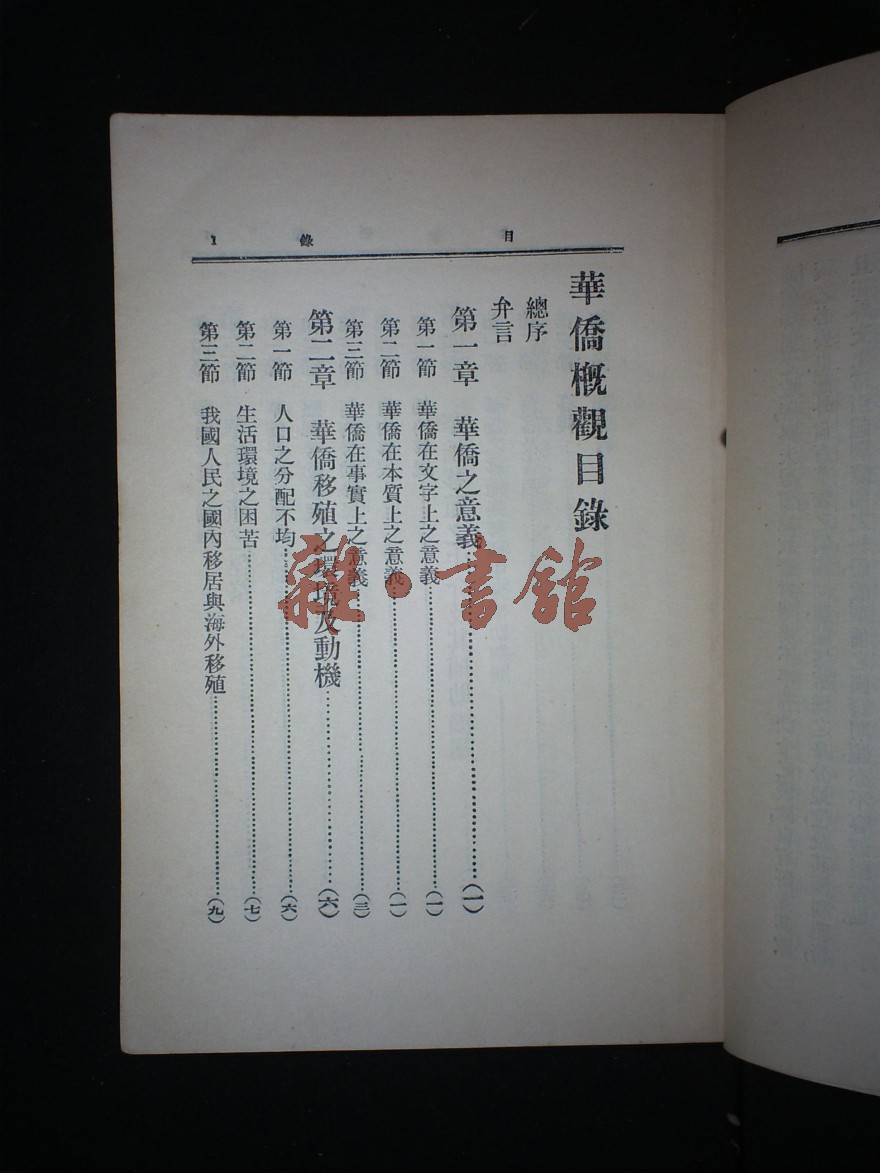 目錄 1
華僑概觀目錄
總序
弁言
第一章 華僑之意義………(一)
第一節 華僑在文字上之意義………(一)
第二節 華僑在本質上之意義………(一)
第三節 華僑在事實上之意義………(三)
第二章 華僑移殖之環境及動機………(六)
第一節 人口之分配不均………(六)
第二節 生活環境之困苦………(七)
第三節 我國人民之國內移居與海外移殖………(九)
雜·書館